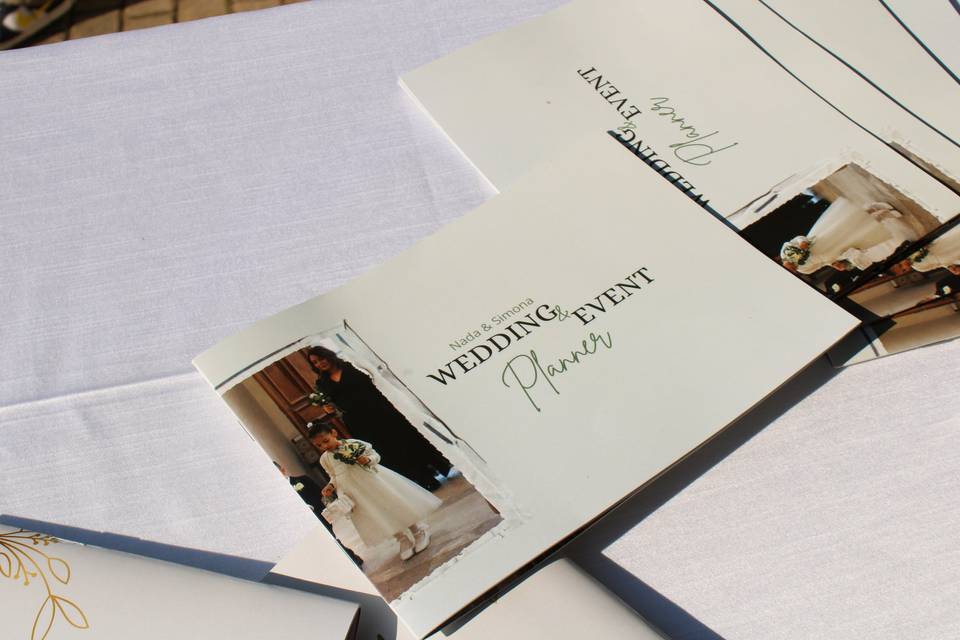 Nada & Simona
WEDDING & EVENT
Planner
WEDDING & EVENT
Planner